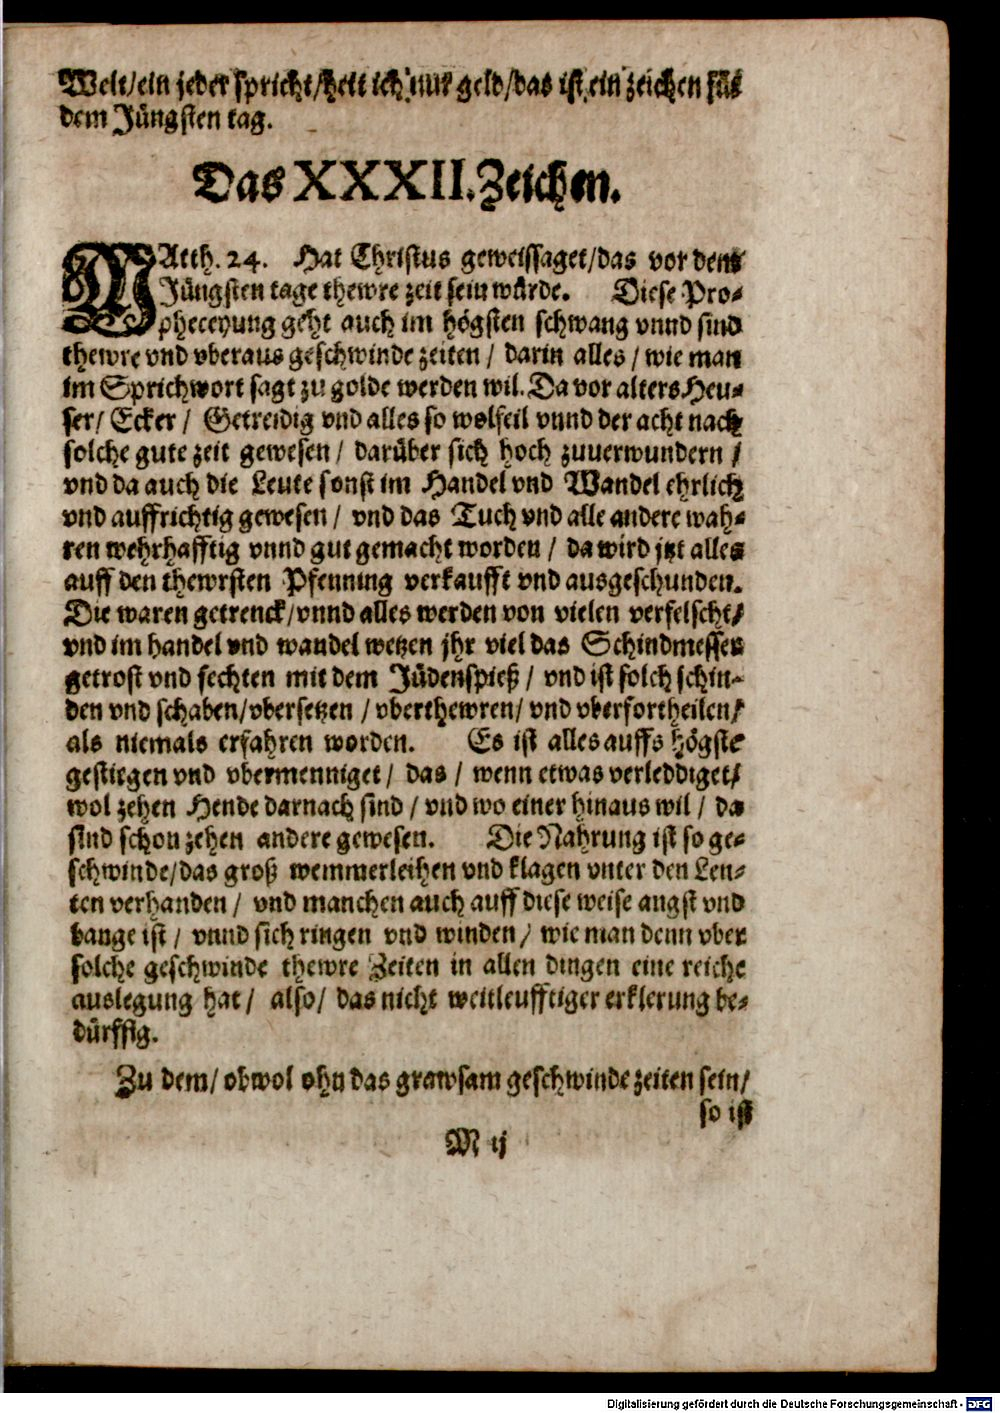 Welt/ein jeder spricht/hett ich nur geld/das ist ein zeichen für
dem Jüngsten tag.
Das XXXII. Zeichen.
MAtth. 24. Hat Christus geweissaget/das vor dem
Jüngsten tage thewre zeit sein würde. Diese Pro-
pheceyung geht auch im högsten schwang vnnd sind
thewre vnd vberaus geschwinde zeiten / darin alles / wie man
im Sprichwort sagt zu golde werden wil. Da vor alters Heu-
ser/ Ecker / Getreidig vnd alles so wolfeil vnnd der acht nach
solche gute zeit gewesen / darüber sich hoch zuuerwundern /
vnd da auch die Leute sonst im Handel vnd Wandel ehrlich
vnd auffrichtig gewesen / vnd das Tuch vnd alle andere wah-
ren wehrhafftig vnnd gut gemacht worden / da wird jtzt alles
auff den thewrsten Pfenning verkaufft vnd ausgeschunden.
Die waren getrenck/vnnd alles werden von vielen verfelscht/
vnd im handel vnd wandel wetzen jhr viel das Schindmesser
getrost vnd fechten mit dem Jüdenspieß / vnd ist solch schin-
den vnd schaben/vbersetzen / vberthewren/ vnd vberfortheilen/
als niemals erfahren worden. Es ist alles auffs högste
gestiegen vnd vbermenniget / das / wenn etwas verleddiget/
wol zehen Hende darnach sind / vnd wo einer hinaus wil / da
sind schon zehen andere gewesen. Die Nahrung ist so ge-
schwinde/das groß wemmerleihen vnd klagen vnter den Leu-
ten verhanden / vnd manchen auch auff diese weise angst vnd
bange ist / vnnd sich ringen vnd winden / wie man denn vber
solche geschwinde thewre Zeiten in allen dingen eine reiche
auslegung hat / also / das nicht weitleufftiger erklerung be-
dürffig.
Zu dem/ obwol ohn das grawsam geschwinde zeiten sein/
so ist
M ij
Digitalisierung gefördert durch die Deutsche Forschungsgemeinschaft - DFG